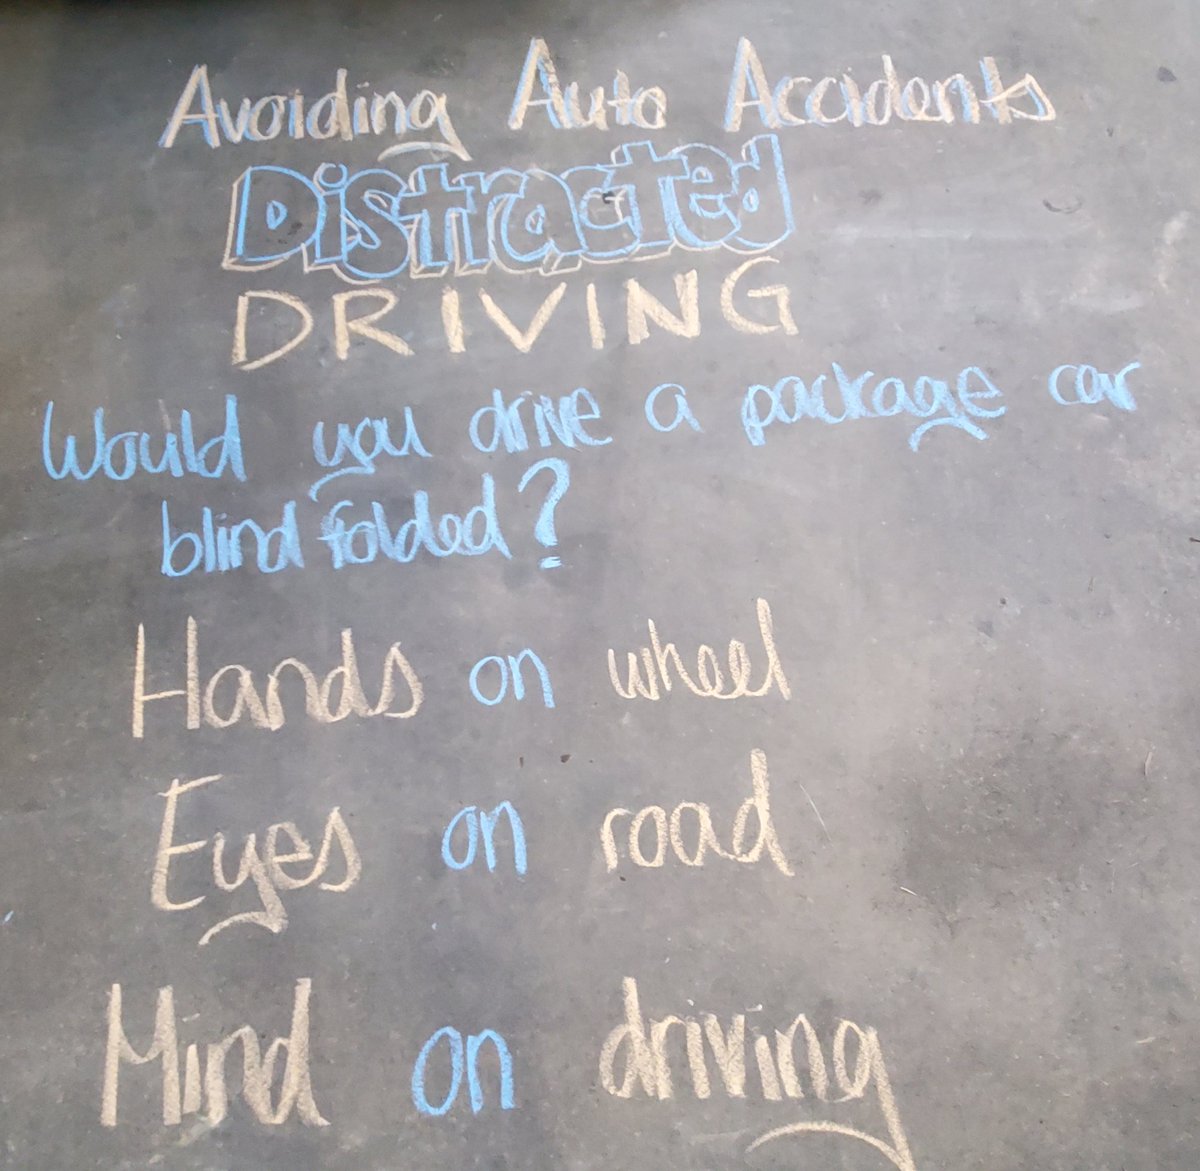 Avoiding Auto Accidents
Distracted
DRIVING
Would you drive a package car
blind folded?
Hands on wheel
Eyes on road
Mind on driving